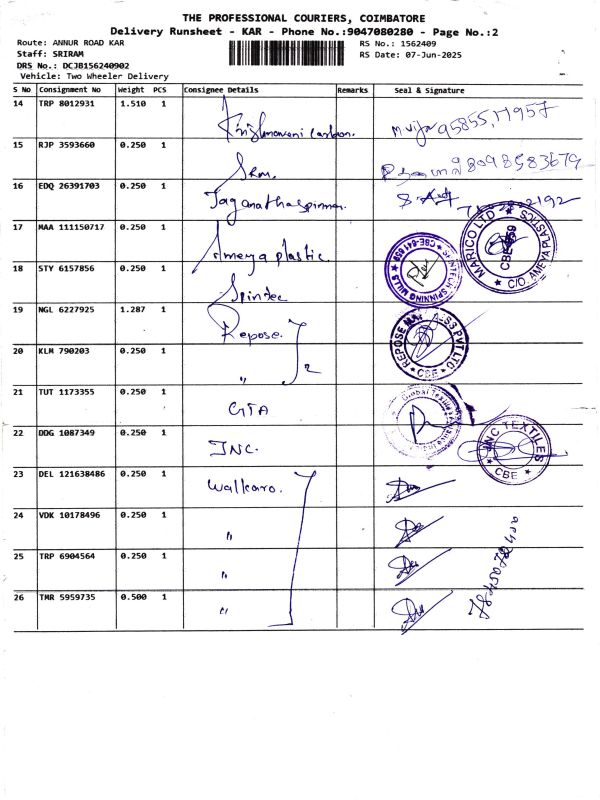 THE PROFESSIONAL COURIERS, COIMBATORE
Delivery Runsheet - KAR - Phone No.:9047080280 - Page No.:2
Route: ANNUR ROAD KAR
RS No.: 1562409
Staff: SRIRAM
RS Date: 07-Jun-2025
DRS No.: DCJB156240902
Vehicle: Two Wheeler Delivery
S No Consignment No Weight PCS Consignee Details Remarks Seal & Signature
14 TRP 8012931 1.510 1 Krishnaveni Carbon.
15 RJP 3593660 0.250 1 SRM. 8098583679
16 EDQ 26391703 0.250 1 Jaganatha
17 MAA 111150717 0.250 1 Ameya plastic
MARICO LTD ★ C/O. ANEYA PLASTIC ★ CBE-659
18 STY 6157856 0.250 1 Spintec
SPINTECH SPINNING MILLS ★ CBE-641 659 ★
19 NGL 6227925 1.287 1 Repose.
REPOSE PVT LTD ★ CBE ★
20 KLM 790203 0.250 1 " 2
21 TUT 1173355 0.250 1 GTA
Global Textile
22 DDG 1087349 0.250 1 JNC.
JNC TEXTILES ★ CBE ★
23 DEL 121638486 0.250 1 Walkaro.
24 VDK 10178496 0.250 1 "
25 TRP 6904564 0.250 1 "
26 TMR 5959735 0.500 1 "